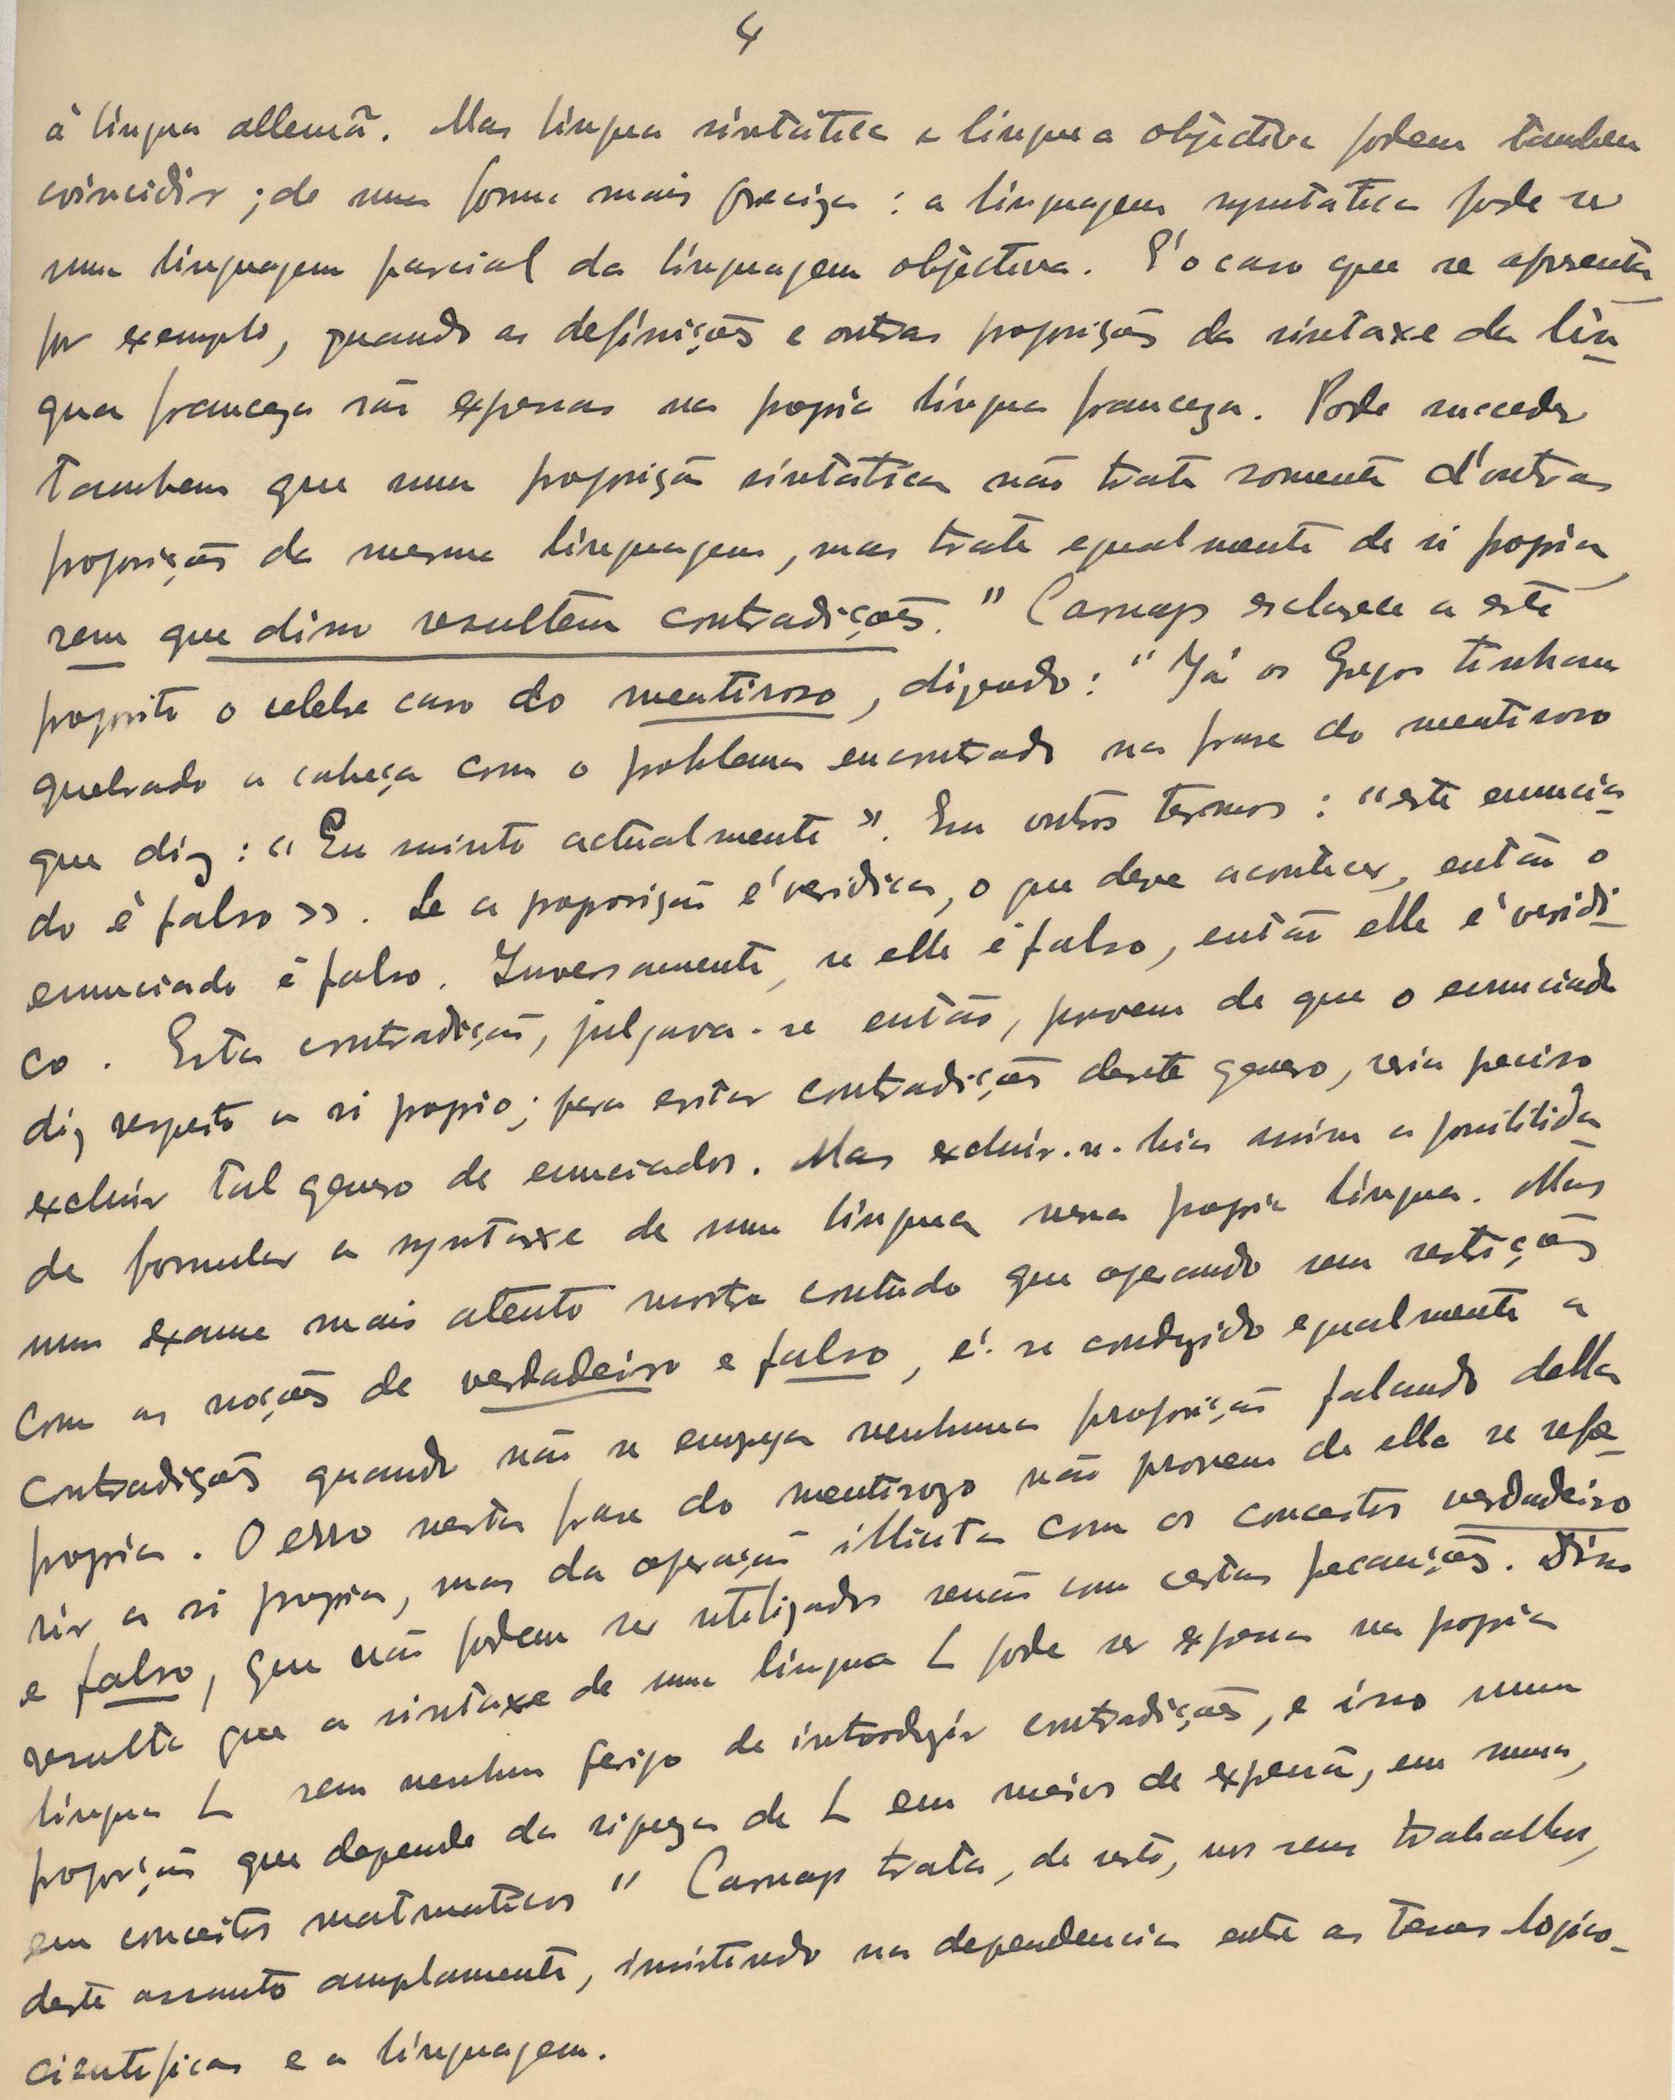 4
à lingua allemã. Mas lingua sintática e lingua objectiva podem tambem
coincidir; de uma forma mais preciza: a linguagem syntatica pode ser
uma linguagem parcial da linguagem objectiva. É o caso que se apresenta
por exemplo, quando as definições e outras proposições da sintaxe da lin
gua franceza são expossas na propria língua franceza. Pode succeder
tambem que uma proposição sintática não trate somente d'outras
proposições da mesma linguagem, mas trate egualmente de si propria,
sem que disso resultem contradições." Carnap esclarece a este
proposito o celebre caso do mentiroso, dizendo: "Já os Gregos tinham
quebrado a cabeça com o problema encontrado na frase do mentiroso
que diz: "Eu minto actualmente". Em outros termos: "este enuncia
do é falso >>. Se a proposição é veridica, o que deve acontecer, então o
enunciado é falso. Inversamente, se elle é falso, então elle é veridi
co. Esta contradição, julgava-se então, provem de que o enunciado
diz respeito a si proprio; para evitar contradições deste genero, seria preciso
excluir tal genero de enunciados. Mas excluir-se-hia assim a possibilida
de formular a syntaxe de uma lingua nessa propria lingua. Mas
um exame mais atento mostra contudo que operando sem restrições
com as noções de verdadeiro e falso, é-se conduzido egualmente a
contradições quando não se emprega nenhuma proposição falando della
propria. O erro nesta frase do mentirozo não provem de ella se refe
rir a si propria, mas da operação illicita com os conceitos verdadeiro
e falso, que não podem ser utilizados senão com certas precauções. Disso
resulta que a sintaxe de uma lingua L pode ser expossa na propria
lingua L sem nenhum perigo de introduzir contradições, e isso numa
proporção que depende da riqueza de L em meios de expressão, em suma,
em conceitos matmaticos" Carnap trata, de resto, nos seus trabalhos,
deste assunto amplamente, insistindo na dependencia entre as teses logico-
cientificas e a linguagem.